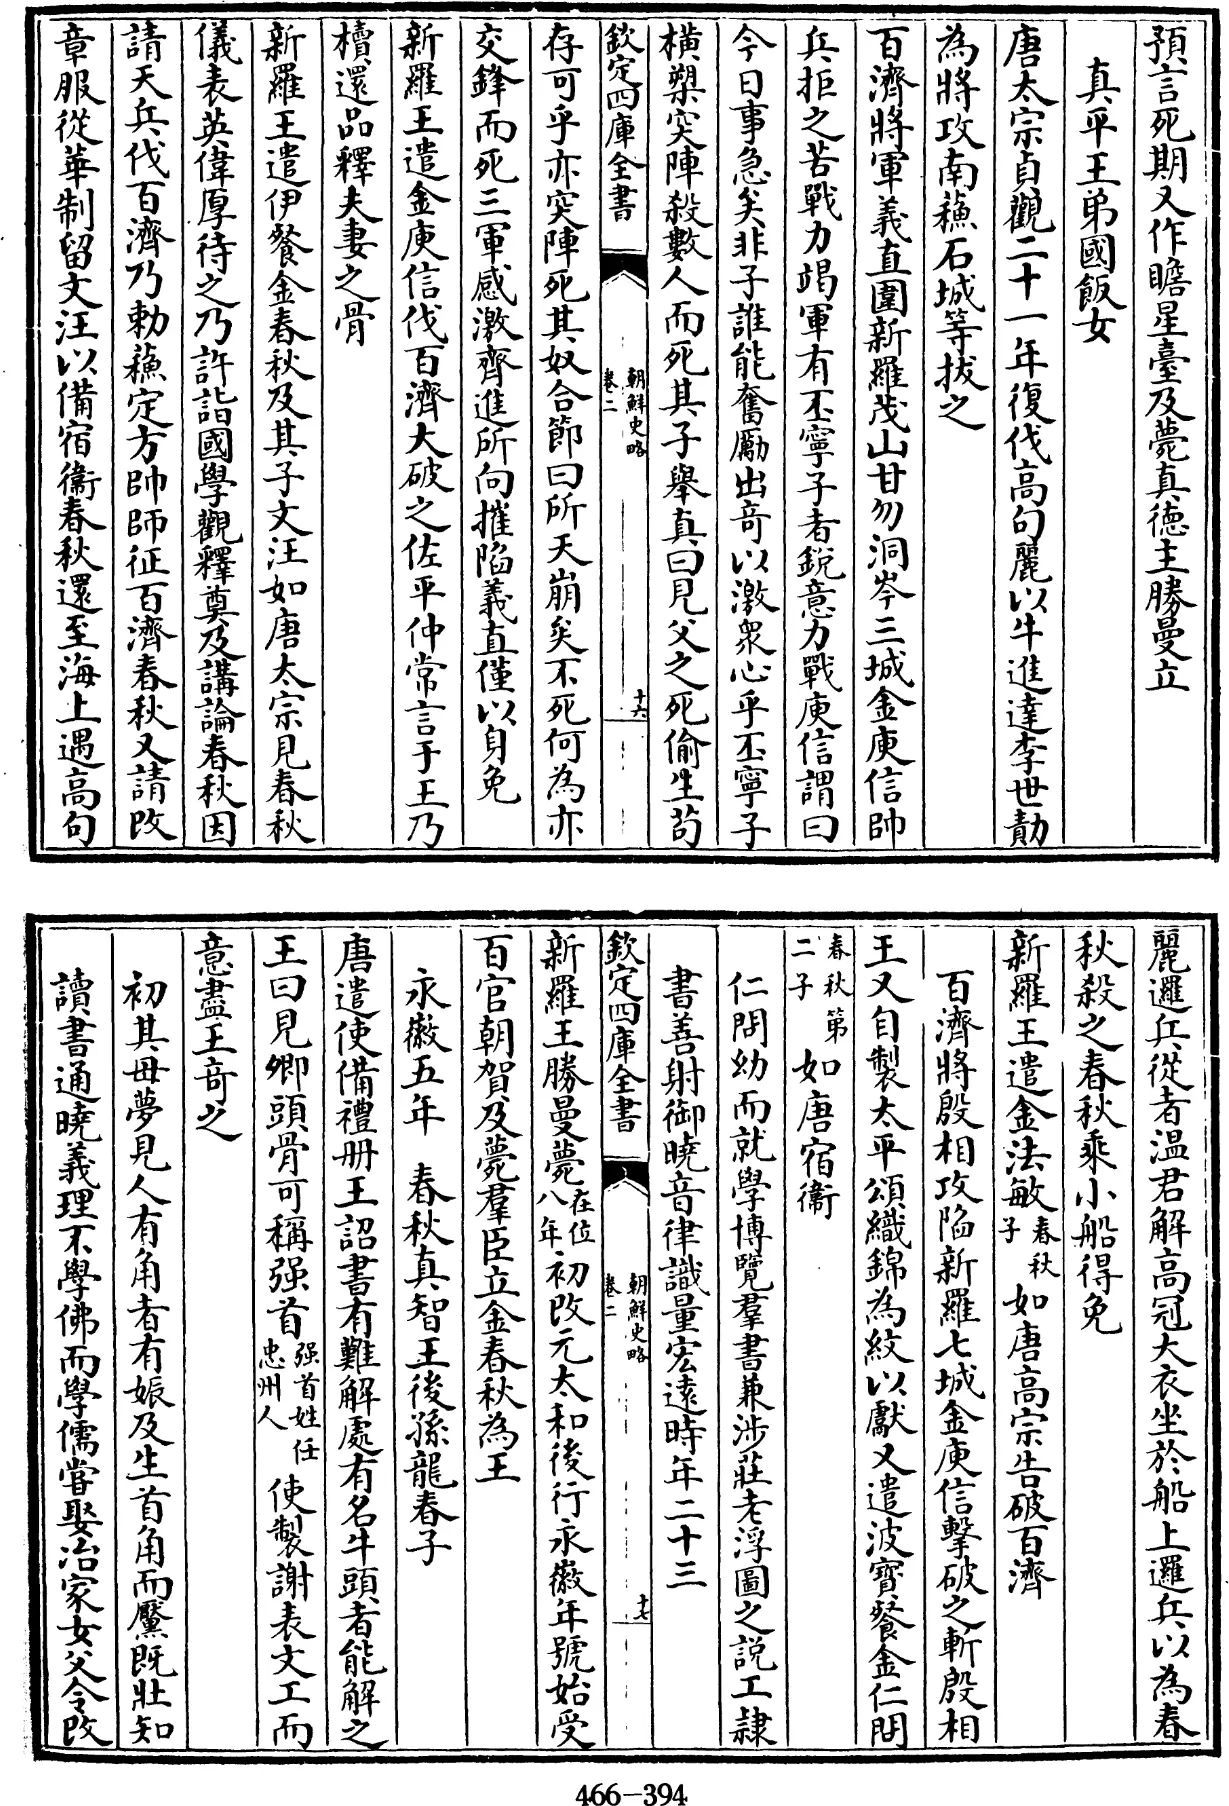 預言死期又作瞻星臺及薨真德主勝曼立
真平王弟國飯女
唐太宗貞觀二十一年復伐高句麗以牛進達李世勣
為將攻南蘇石城等拔之
百濟將軍義直圍新羅茂山甘勿洞岑三城金庾信帥
兵拒之苦戰力竭軍有丕寧子者銳意力戰庾信謂曰
今日事急矣非子誰能奮勵出奇以激衆心乎丕寧子
橫槊突陣殺數人而死其子舉真曰見父之死偷生苟
欽定四庫全書
朝鮮史略
卷二
十六
存可乎亦突陣死其奴合節曰所天崩矣不死何為亦
交鋒而死三軍感激齊進所向摧陷義直僅以身免
新羅王遣金庾信伐百濟大破之佐平仲常言于王乃
櫝還品釋夫妻之骨
新羅王遣伊飡金春秋及其子文汪如唐太宗見春秋
儀表英偉厚待之乃許詣國學觀釋奠及講論春秋因
請天兵伐百濟乃勅蘇定方帥師征百濟春秋又請改
章服從華制留文汪以備宿衞春秋還至海上遇高句
麗邏兵從者溫君解高冠大衣坐於船上邏兵以為春
秋殺之春秋乘小船得免
新羅王遣金法敏春秋子如唐高宗告破百濟
百濟將殷相攻陷新羅七城金庾信擊破之斬殷相
王又自製太平頌織錦為紋以獻又遣波寶飡金仁問
春秋第二子如唐宿衞
仁問幼而就學博覽羣書兼涉莊老浮圖之說工隷
書善射御曉音律識量宏遠時年二十三
欽定四庫全書
朝鮮史略
卷二
十七
新羅王勝曼薨在位八年初改元太和後行永徽年號始受
百官朝賀及薨羣臣立金春秋為王
永徽五年　春秋真智王後孫龍春子
唐遣使備禮册王詔書有難解處有名牛頭者能解之
王曰見卿頭骨可稱强首强首姓任忠州人使製謝表文工而
意盡王奇之
初其母夢見人有角者有娠及生首角而黶既壯知
讀書通曉義理不學佛而學儒嘗娶冶家女父令改
466-394